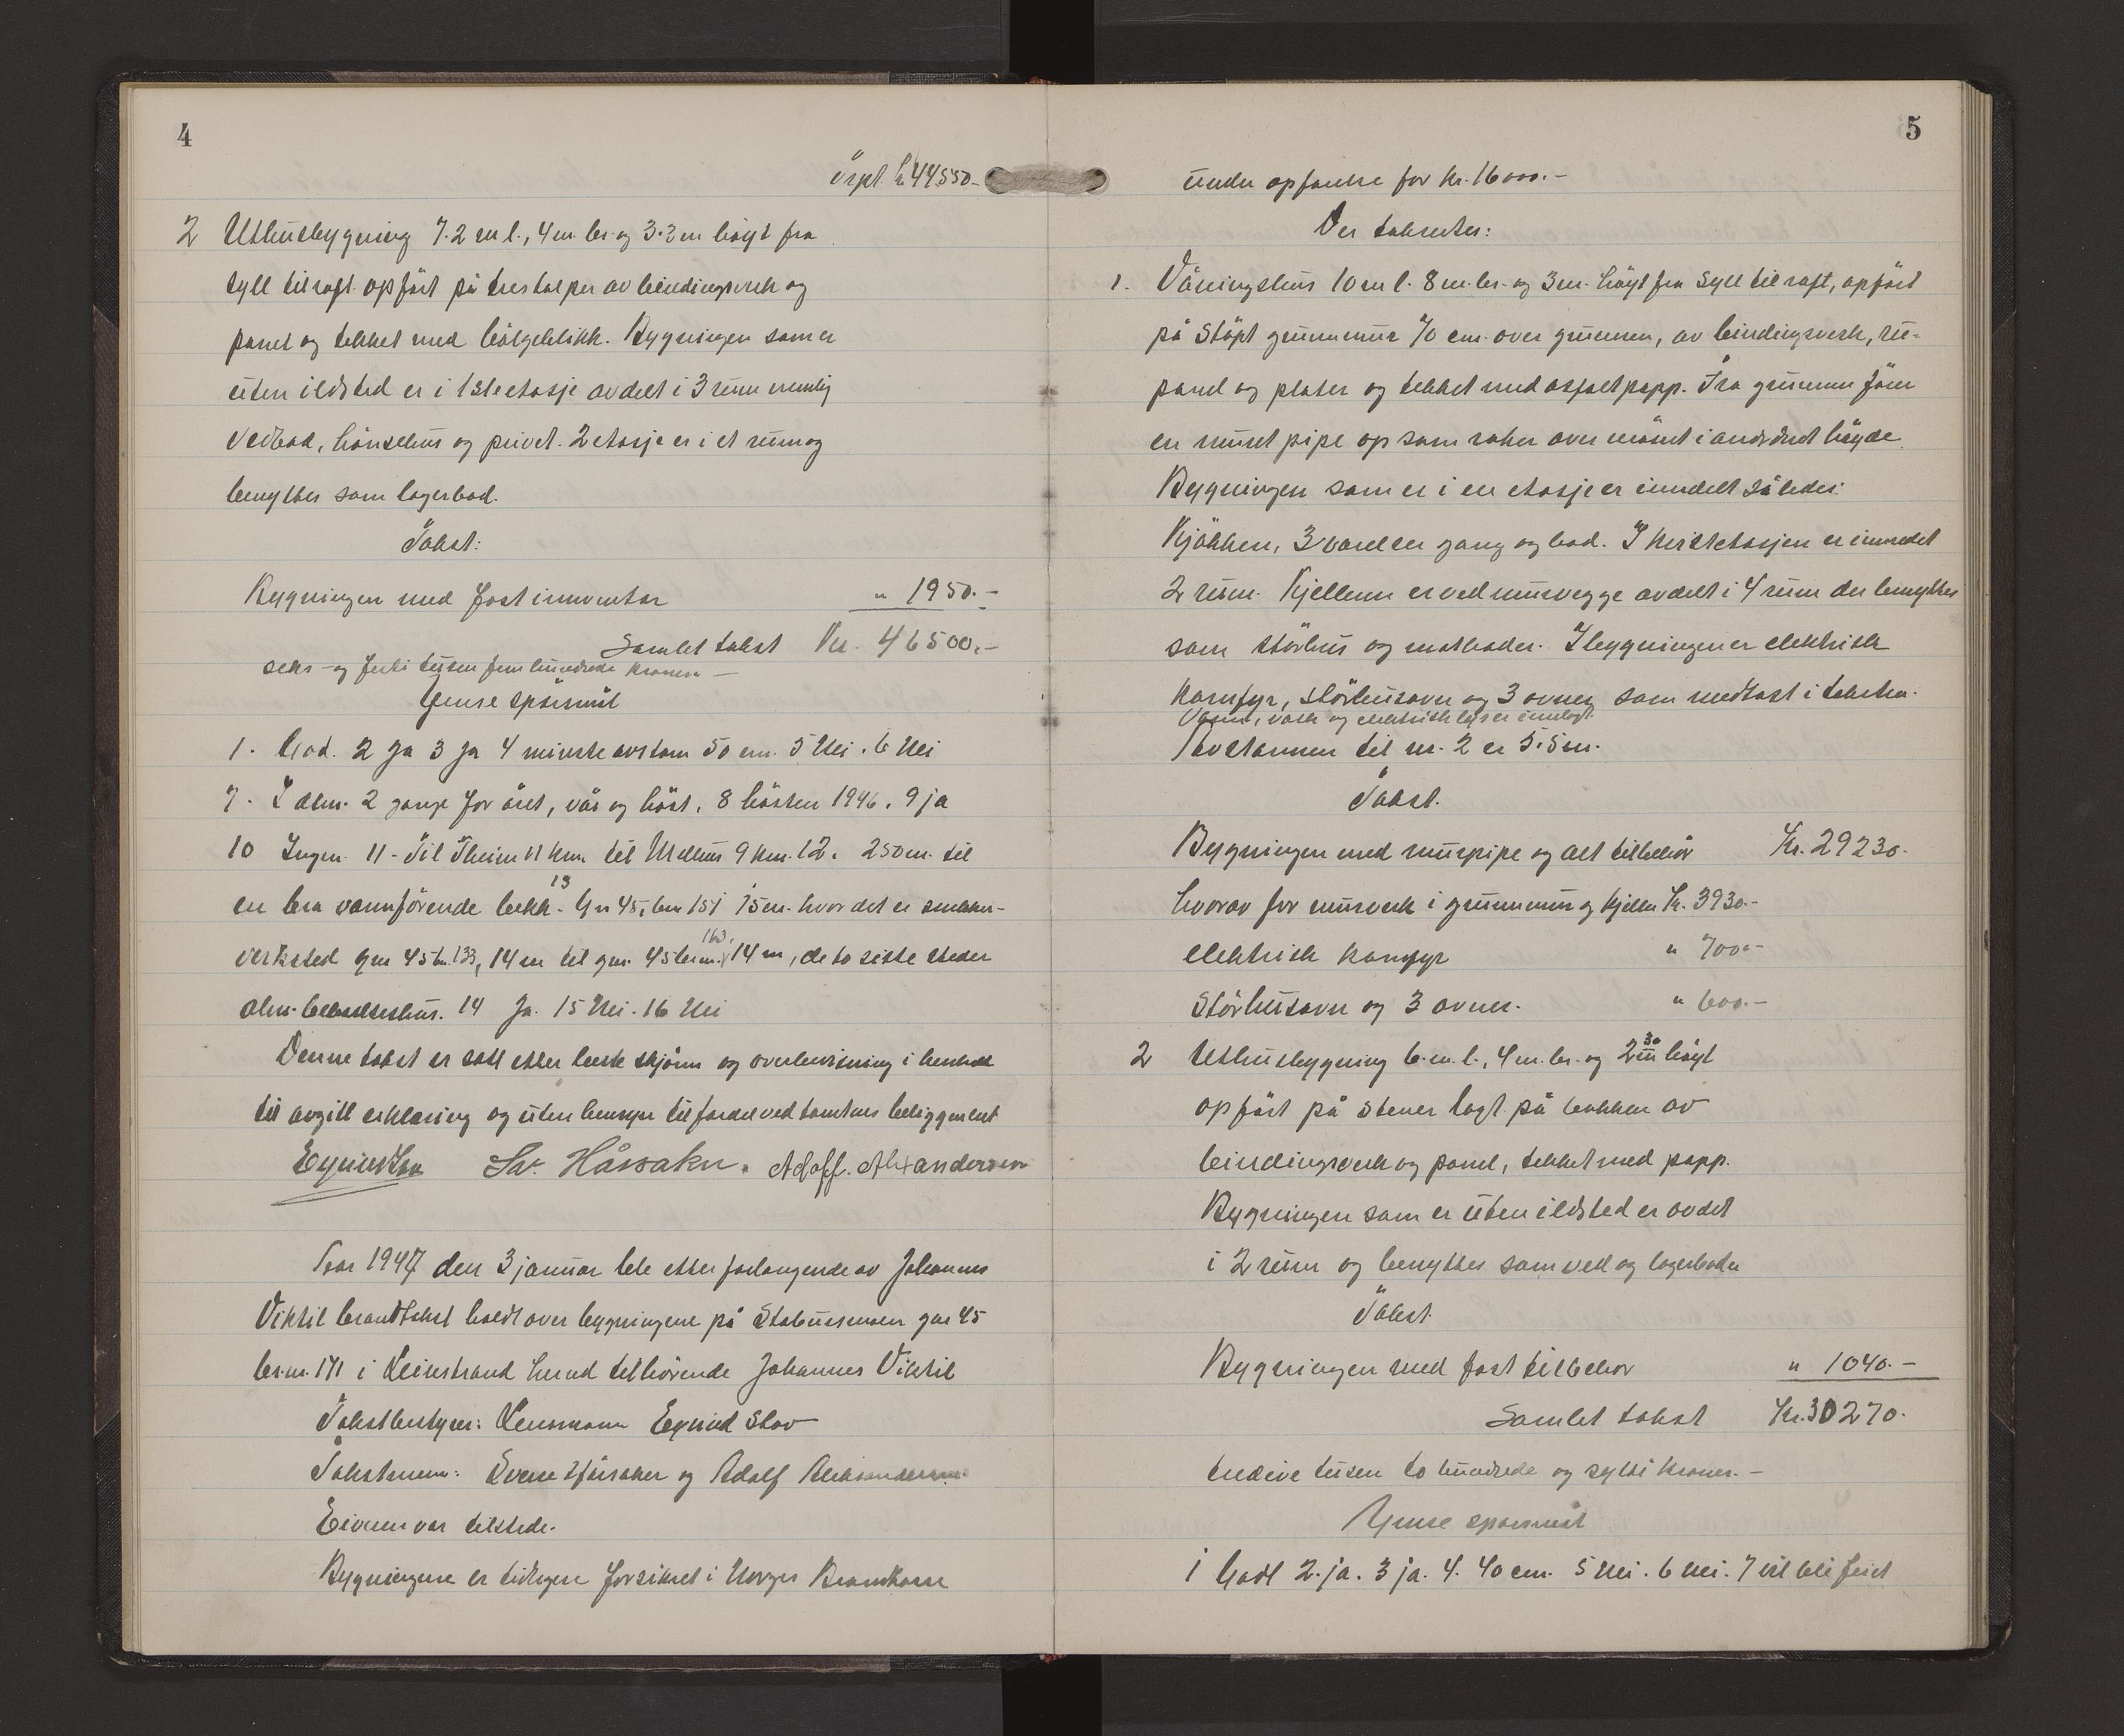 4
Trspt. kr 44550.-
2 Uthusbygning 7.2 m l., 4 m. br. og 3.3 m höyt fra
syll til raft opfört på trestolper av bindingsverk og
panel og tekket med bölgeblikk. Bygningen som er
uten ildsted er i 1ste etasje avdelt i 3 rum nemlig
vedbod, hönsehus og privet. 2 etasje er i et rum og
benyttes som lagerbod.
Takst:
Bygningen med fast inventar " 1950.-
Samlet takst Kr. 46500.-
seks-og førti tusen fem hundrede kroner -
Yense spörsmål
1. God. 2 ja 3 ja 4 minste avstann 50 cm. 5 Nei. 6 Nei
7. I alm. 2 gange for året, vår og höst. 8 hösten 1946. 9 ja
10 Ingen. 11 - Til Theim 11 km. til Melhus 9 km. 12. 250 m. til
en bra vannförende bekk. 13 Gn 45, bn 151 15 m. hvor det er snekker-
verksted gnr 45 bn. 133, 14 m til gnr. 45 br.nr. 163, 14 m, de to siste steder
alm. beboelseshus. 14 Ja. 15 Nei. 16 Nei
Denne takst er satt etter beste skjönn og overbevisning i henhold
til avgitt erklæring og uten hensyn til fordel ved tomtens beliggenhet
Eyvind Stav Sv. Håssaker. Adolf. Alexandersen
Aar 1947 den 3 januar ble etter forlangende av Johannes
Viktil branntakst holdt over bygningene på Stabusmoen gnr 45
br.nr. 171 i Leinstrand herred tilhörende Johannes Viktil
Takstbestyrer: Lensmann Eyvind Stav
Takstmenn: Sverre Håssaker og Adolf Aleksandersen
Eieren var tilstede.
Bygningene er tidligere forsikret i Norges Brannkasse
5
under opförelse for kr. 16000.-
Der takseres:
1. Våningshus 10 m l. 8 m. br. og 3 m. höyt fra syll til raft, opfört
på stöpt grunnmur 70 cm. over grunnen, av bindingsverk, ru-
panel og plater og tekket med asfaltpapp. Fra grunnen förer
en muret pipe op som raker over mönet i anordnet höyde.
Bygningen som er i en etasje er inndelt således:
Kjökken, 3 værelser gang og bod. I kvistetasjen er innredet
2 rum. Kjelleren er ved murvegge avdelt i 4 rum der benyttes
som störhus og matboder. I bygningen er elektrisk
komfyr, störhusovn og 3 ovner som medtatt i taksten.
Vann, vask og elektrisk lys er innlagt.
Avstannen til nr. 2 er 5.5 m.
Takst.
Bygningen med murpipe og alt tilbehör Kr. 29230.-
hvorav for murverk i grunnmur og kjeller Kr. 3930.-
elektrisk komfyr " 700.-
Störhusovn og 3 ovner. " 600.-
2 Uthusbygning 6. m. l., 4 m. br. og 2 30 m höyt
opfört på stener lagt på bakken av
bindingsverk og panel, tekket med papp.
Bygningen som er uten ildsted er avdelt
i 2 rum og benyttes som ved og lagerboder
Takst.
Bygningen med fast tilbehör " 1040.-
Samlet takst Kr. 30270.-
tredive tusen to hundrede og sytti kroner.-
Yense spörsmål
1 Godt 2. ja. 3 ja. 4. 40 cm. 5 Nei. 6 nei. 7 vil bli feiet